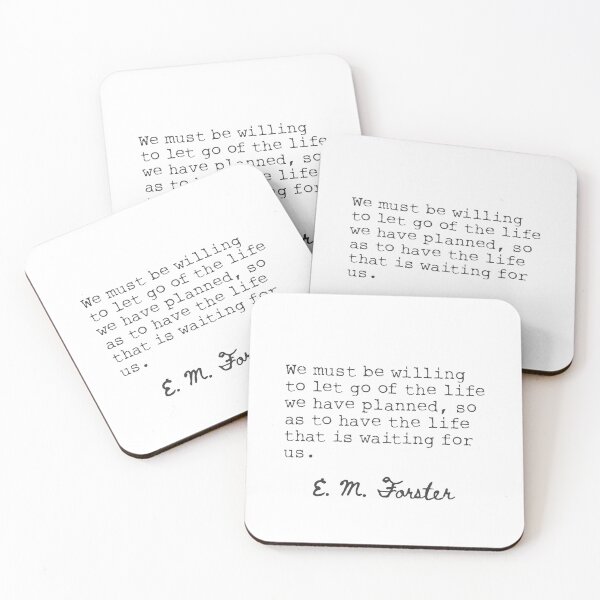 We must be willing
to let go of the life
we have planned, so
as to have the life
waiting for
Forster
We must be willing
to let go of the life
we have planned, so
as to have the life
that is waiting for
us.
We must be willing
to let go of the life
we have planned, so
as to have the life
that is waiting for
us.
E. M. Forster
We must be willing
to let go of the life
we have planned, so
as to have the life
that is waiting for
us.
E. M. Forster